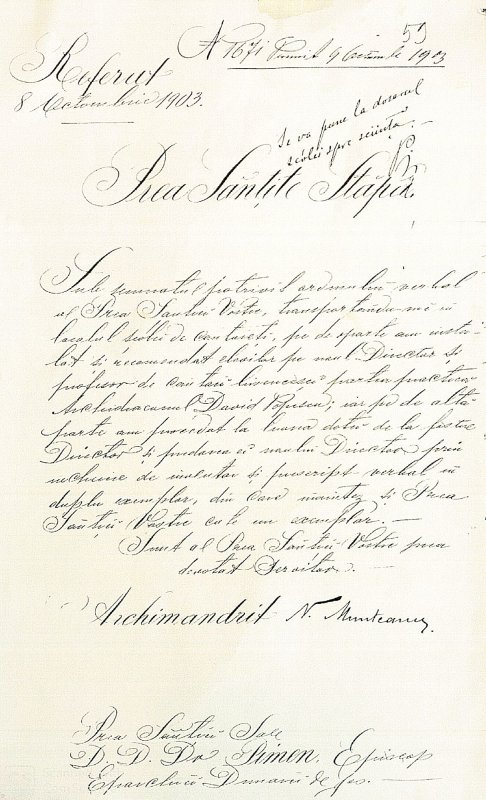 53
N 1671 Primit 9 Octombrie 1903
Referat
8 Octombrie 1903.
Se va pune la dosarul
școlei spre sciință.
Prea Sânțite Stăpâ
Sub semnatul potrivit ordinului verbal
al Prea Sânției Vostre, transportându-mě în
localul școlei de cântăreți, pe de oparte am insta-
lat și recomandat elevilor pe noul Director și
profesor de cântări bisericesci partea practică
Archidiaconul David Popescu; iar pe de altă
parte am procedat la luarea dotei de la fostul
Director și predarea ei noului Director prin
încheiere de inventar și prescript verbal în
duplu exemplar, din care înaintez și Prea
Sânției Vostre câte un exemplar. —
Sunt al Prea Sânției Vostre prea
devotat Servitor. —
Archimandrit N. Munteanu
Prea Sânției Sale
D. D. Dr Pimen, Episcop
Eparchiei Dunării de jos. —